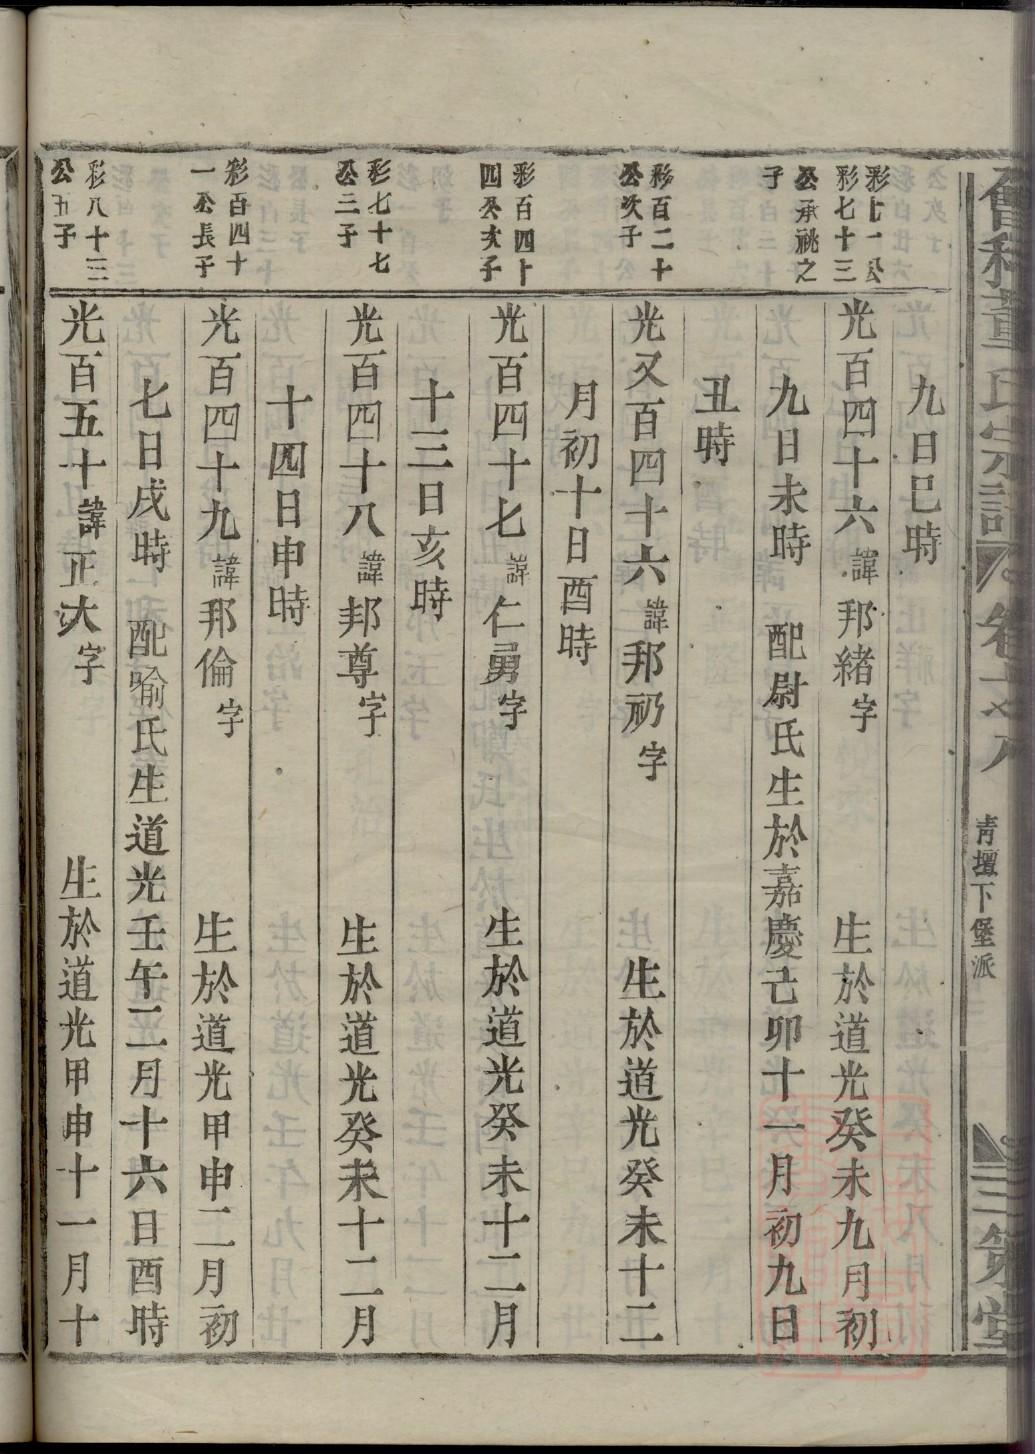 董氏宗譜
卷
青壇下堡派
三策堂
九日巳時
彩七一公
彩七十三
公承祧之
子
光百四十六諱邦緒字 生於道光癸未九月初
九日未時 配尉氏生於嘉慶己卯十一月初九日
丑時
彩百二十
公次子
光又百四十六諱邦礽字 生於道光癸未十二
月初十日酉時
彩百四十
四公次子
光百四十七諱仁勇字 生於道光癸未十二月
十三日亥時
彩七十七
公二子
光百四十八諱邦尊字 生於道光癸未十二月
十四日申時
彩百四十
一公長子
光百四十九諱邦倫字 生於道光甲申二月初
七日戌時 配喻氏生道光壬午二月十六日酉時
彩八十三
公五子
光百五十諱正大字 生於道光甲申十一月十